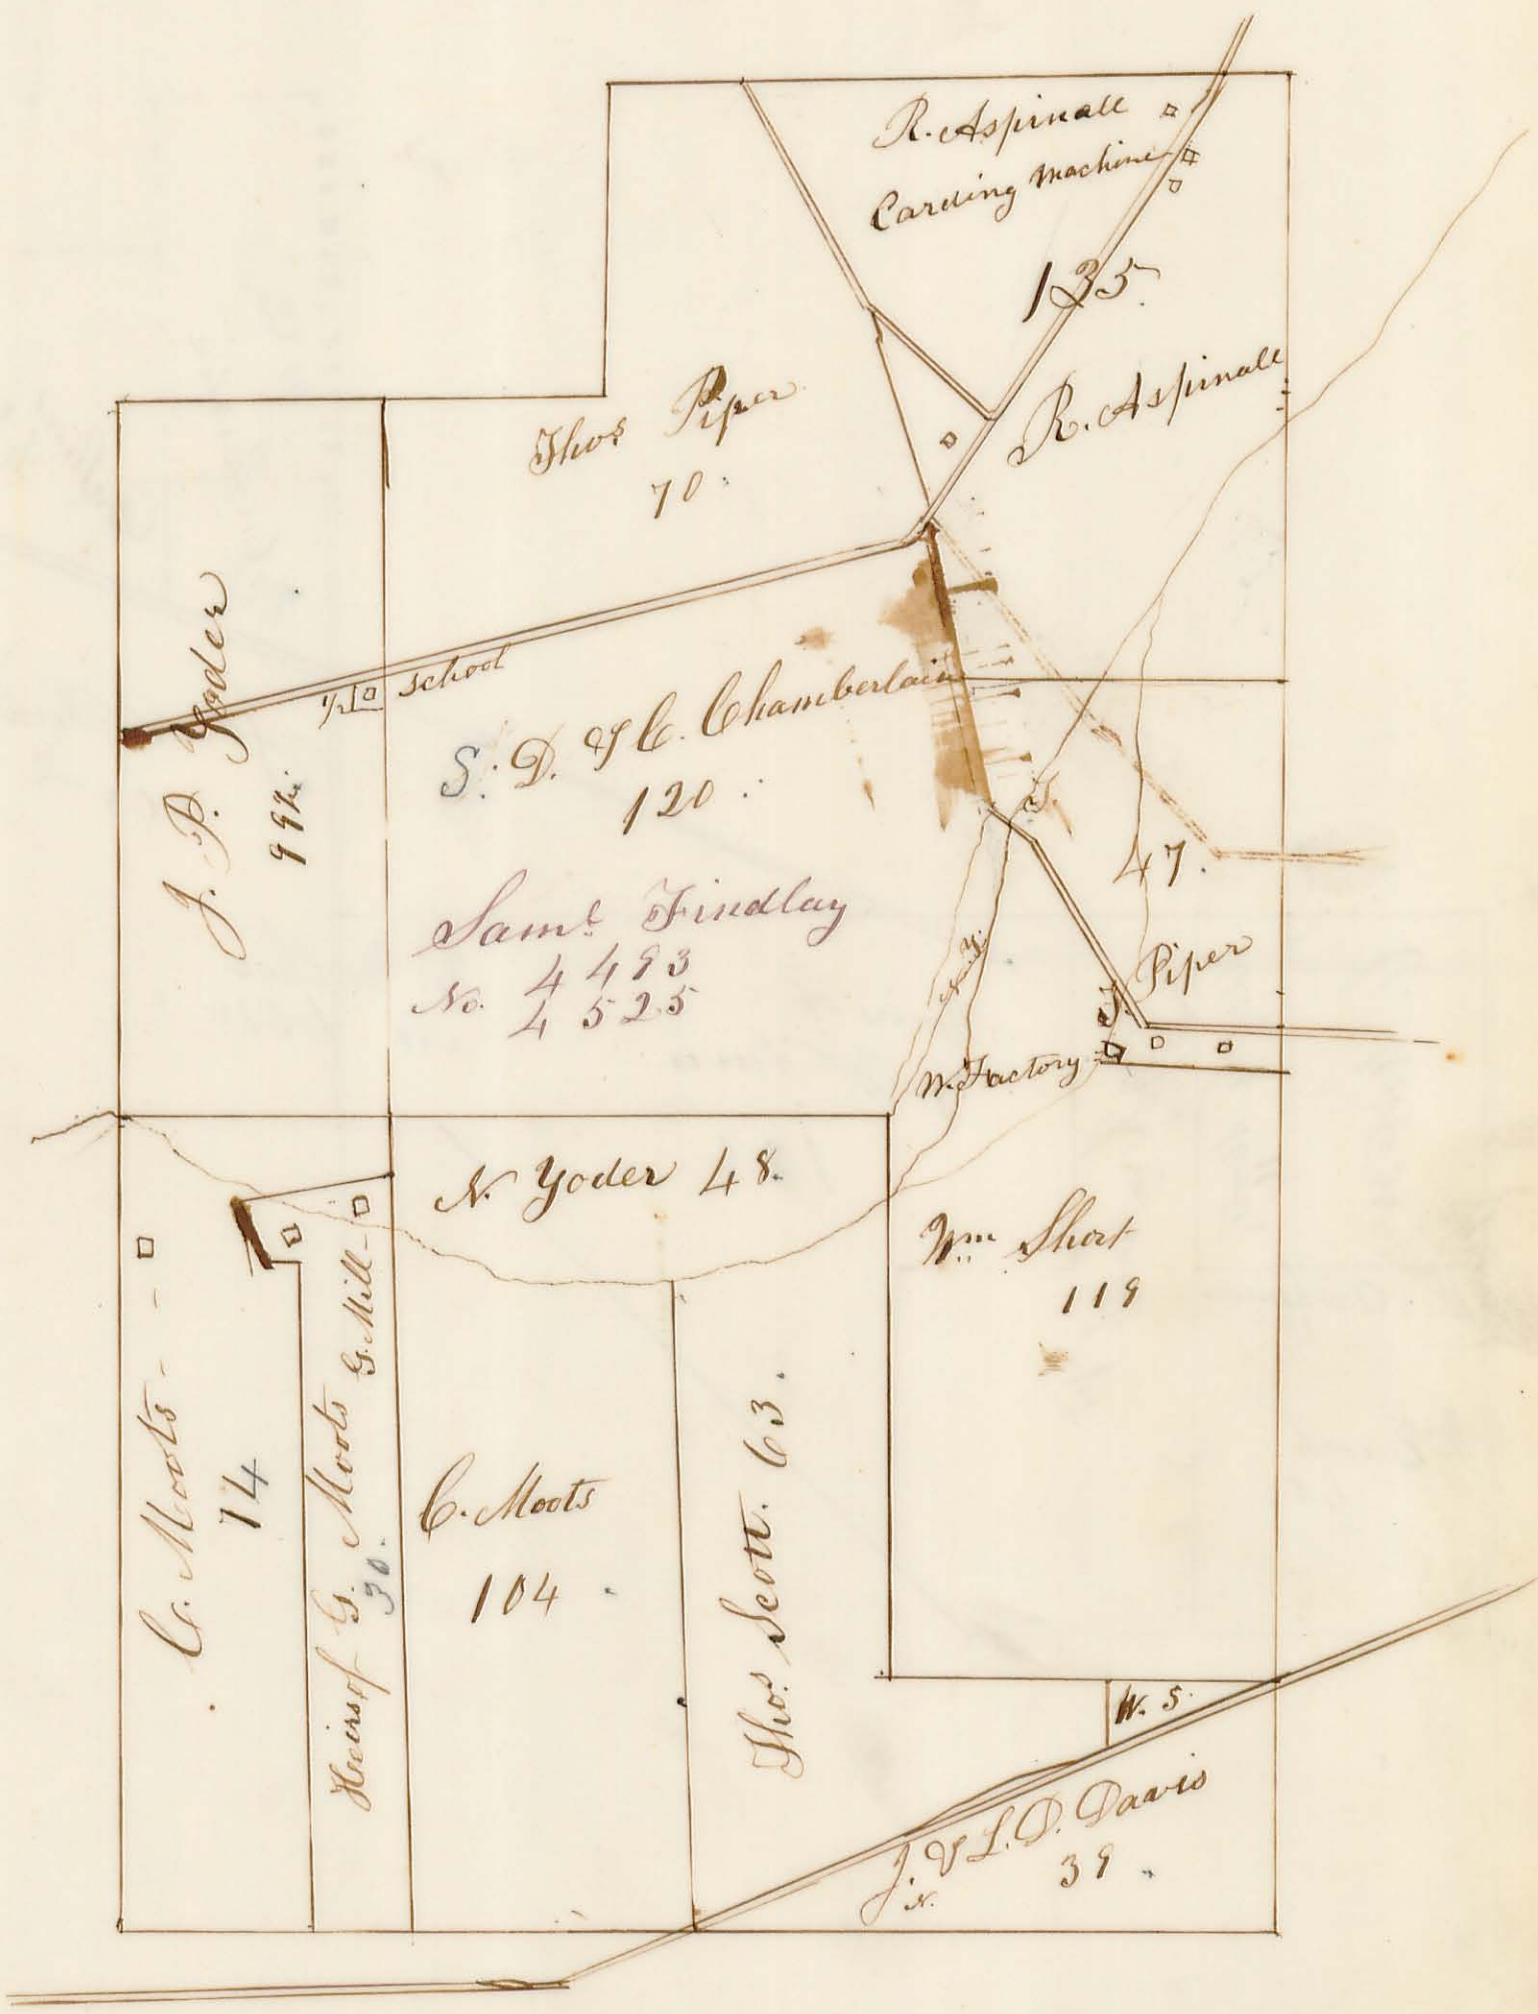 R. Aspinall
Carding Machine
135.
R. Aspinall
Thos Piper
70.
J. P. Yoder
99½
½
school
S. D. & C. Chamberlain
120.
Saml. Findlay
No. 4493
4525
47.
T. Piper
W. Factory
N. Yoder 48.
Wm Short
119
C. Moots
74
Heirs of G. Moots G. Mill
30.
C. Moots
104.
Thos. Scott. 63.
W. S.
J. & L. D. Davis
N.
39.